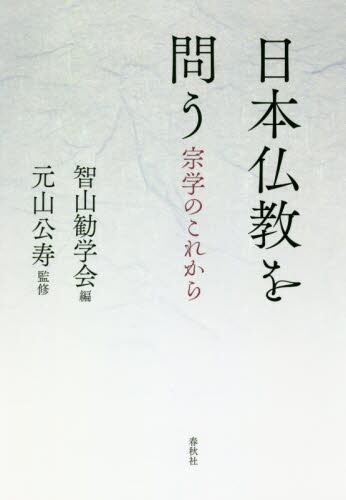 日本仏教を
問う
宗学のこれから
智山勧学会編
元山公寿監修
春秋社